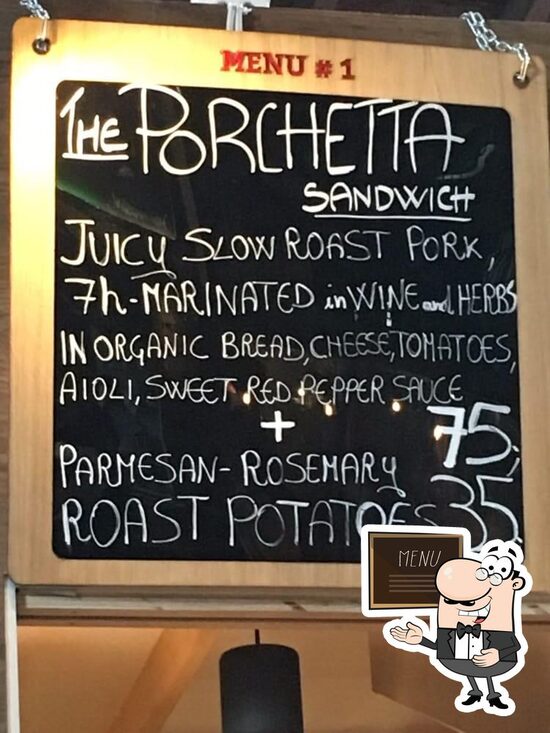 MENU # 1
THE PORCHETTA
SANDWICH
JUICY SLOW ROAST PORK,
7h-MARINATED in WINE and HERBS
IN ORGANIC BREAD, CHEESE, TOMATOES,
AIOLI, SWEET RED PEPPER SAUCE
+
75,-
PARMESAN-ROSEMARY
ROAST POTATOES 35
MENU